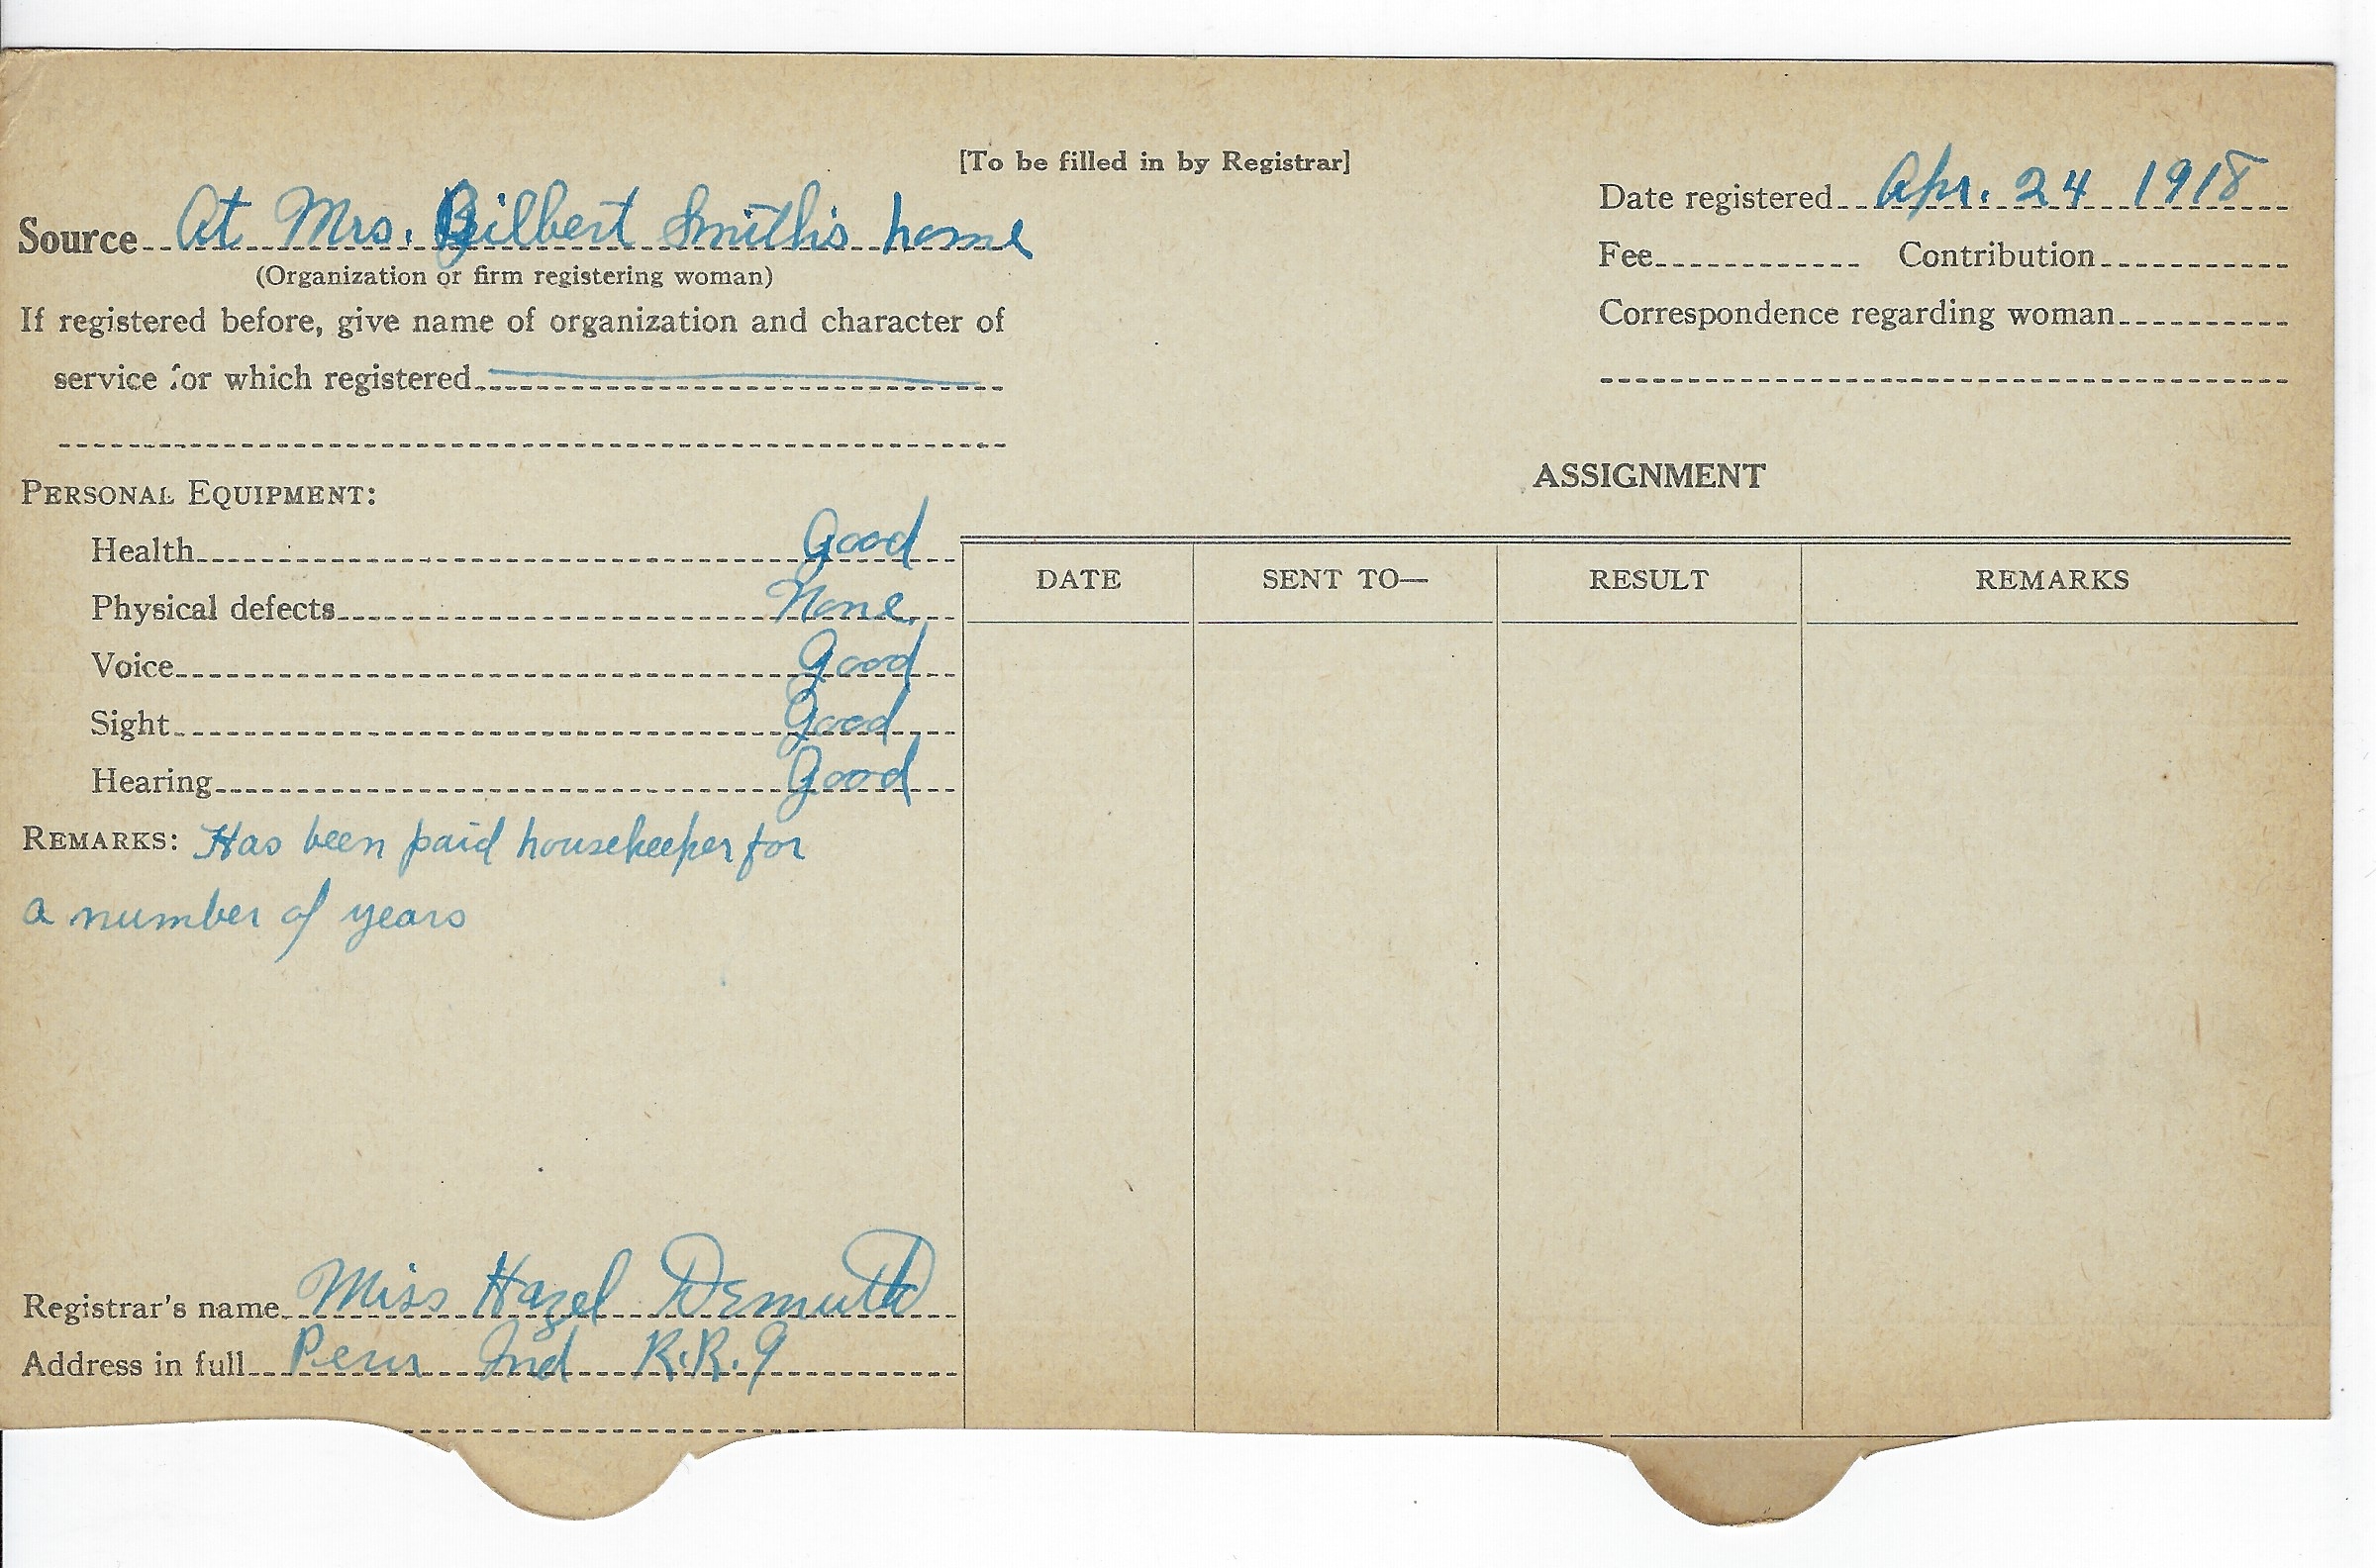 [To be filled in by Registrar]
Source At Mrs. Gilbert Smith's home
(Organization or firm registering woman)
If registered before, give name of organization and character of
service for which registered
Date registered Apr. 24 1918
Fee Contribution
Correspondence regarding woman
PERSONAL EQUIPMENT:
Health Good
Physical defects None
Voice Good
Sight Good
Hearing Good
REMARKS: Has been paid housekeeper for
a number of years
Registrar's name Miss Hazel Demuth
Address in full Peru Ind R.R.9
ASSIGNMENT
DATE SENT TO— RESULT REMARKS